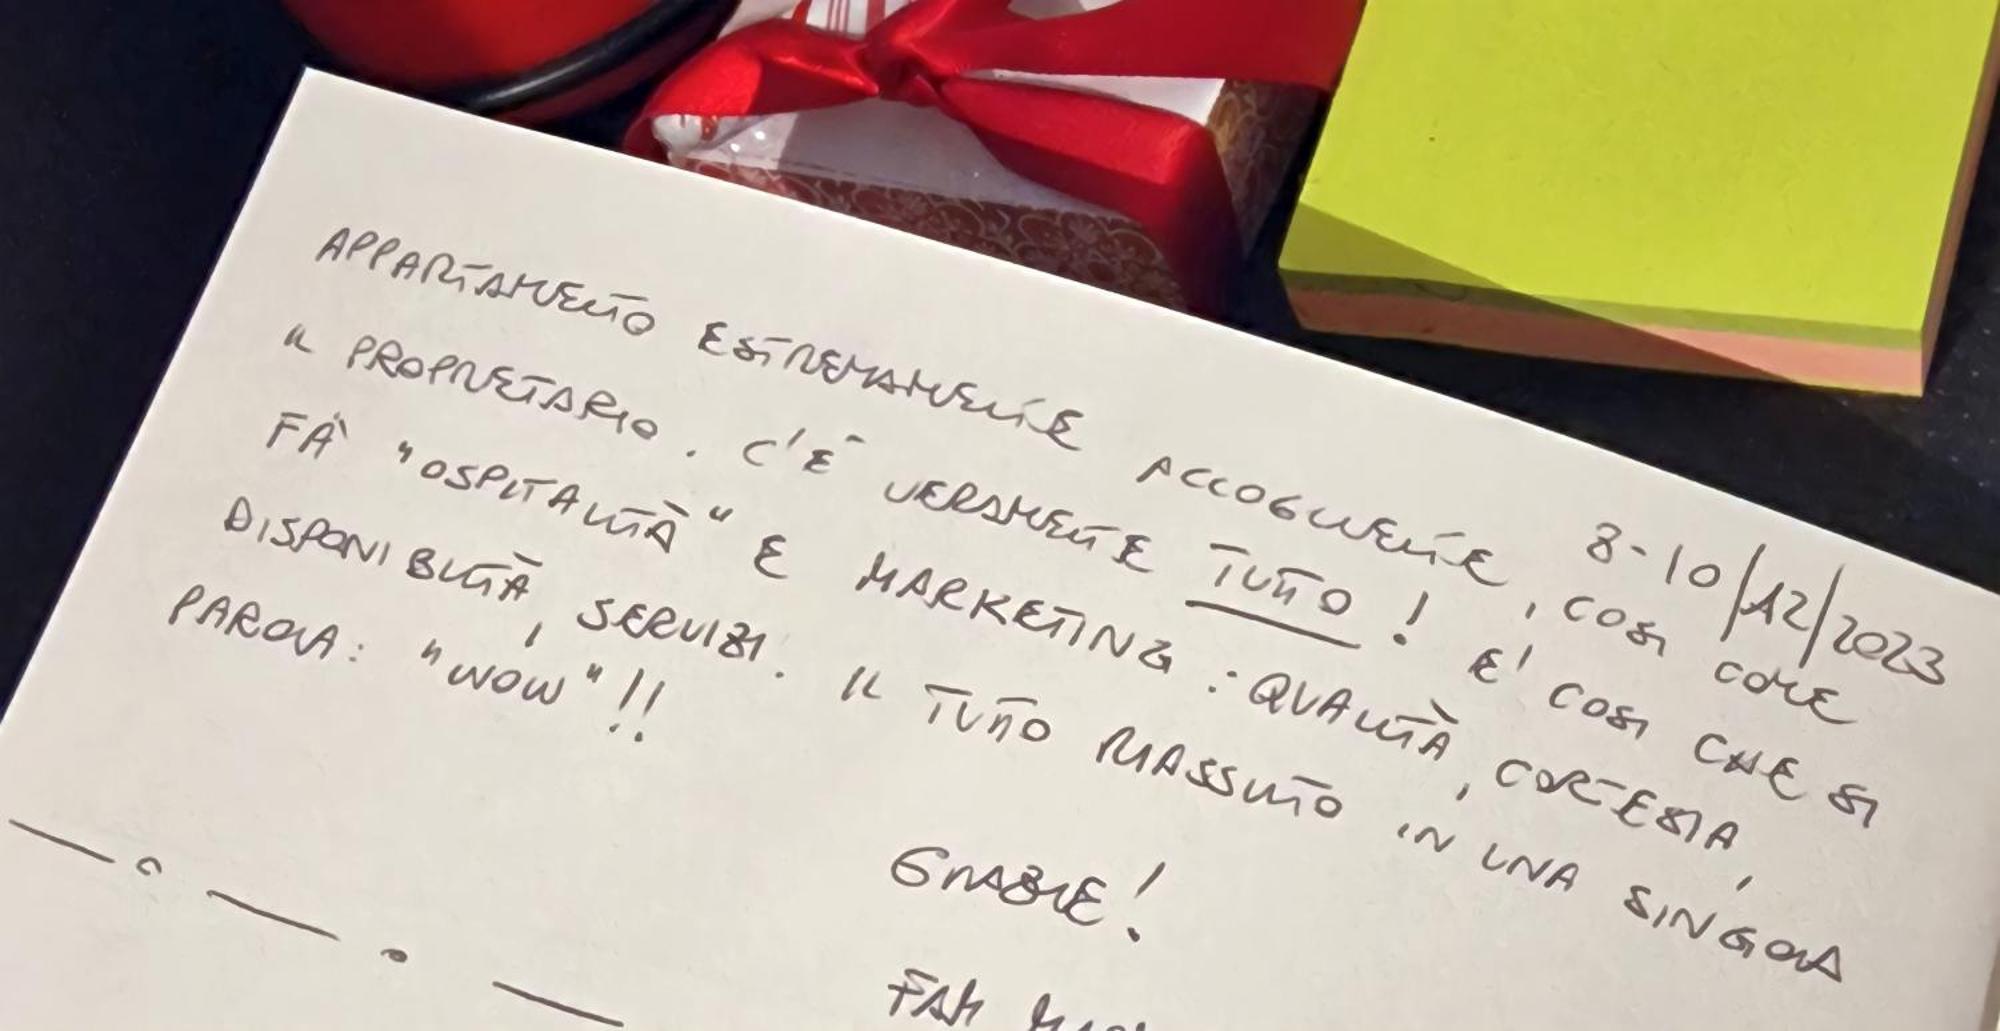 8-10/12/2023
APPARTAMENTO ESTREMAMENTE ACCOGLIENTE, COSI COME
IL PROPRIETARIO. C'È VERAMENTE TUTTO! E' COSI CHE SI
FÀ "OSPITALITÀ" E MARKETING: QUALITÀ, CORTESIA,
DISPONIBILITÀ, SERVIZI. IL TUTTO RIASSUNTO IN UNA SINGOLA
PAROLA: "WOW"!!
GRAZIE!
FAM